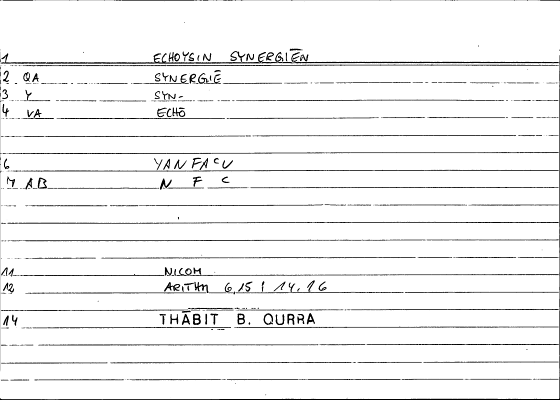 1 ECHOYSIN SYNERGIĒN
2 QA SYNERGIĒ
3 Y SYN-
4 VA ECHŌ
6 YANFACU
7 AB N F C
11 NICOM
12 ARITHM 6,15 | 14,16
14 THĀBIT B. QURRA